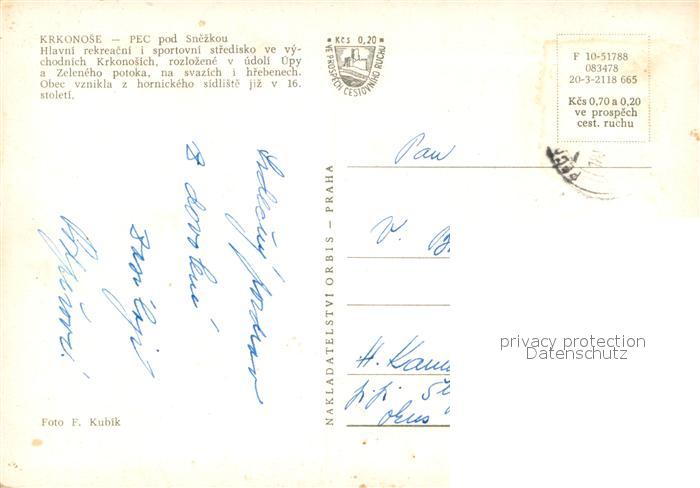 KRKONOŠE — PEC pod Sněžkou
Hlavní rekreační i sportovní středisko ve vý-
chodních Krkonoších, rozložené v údolí Úpy
a Zeleného potoka, na svazích i hřebenech.
Obec vznikla z hornického sídliště již v 16.
století.
Kčs 0,20
VE PROSPĚCH CESTOVNÍHO RUCHU
F 10-51788
083478
20-3-2118 665
Kčs 0,70 a 0,20
ve prospěch
cest. ruchu
PEC
Srdečný pozdrav
z dovolené
zasílají
NAKLADATELSTVÍ ORBIS — PRAHA
Pan
V. B
H. Kam
p. p.
okres
Foto F. Kubík
privacy protection
Datenschutz